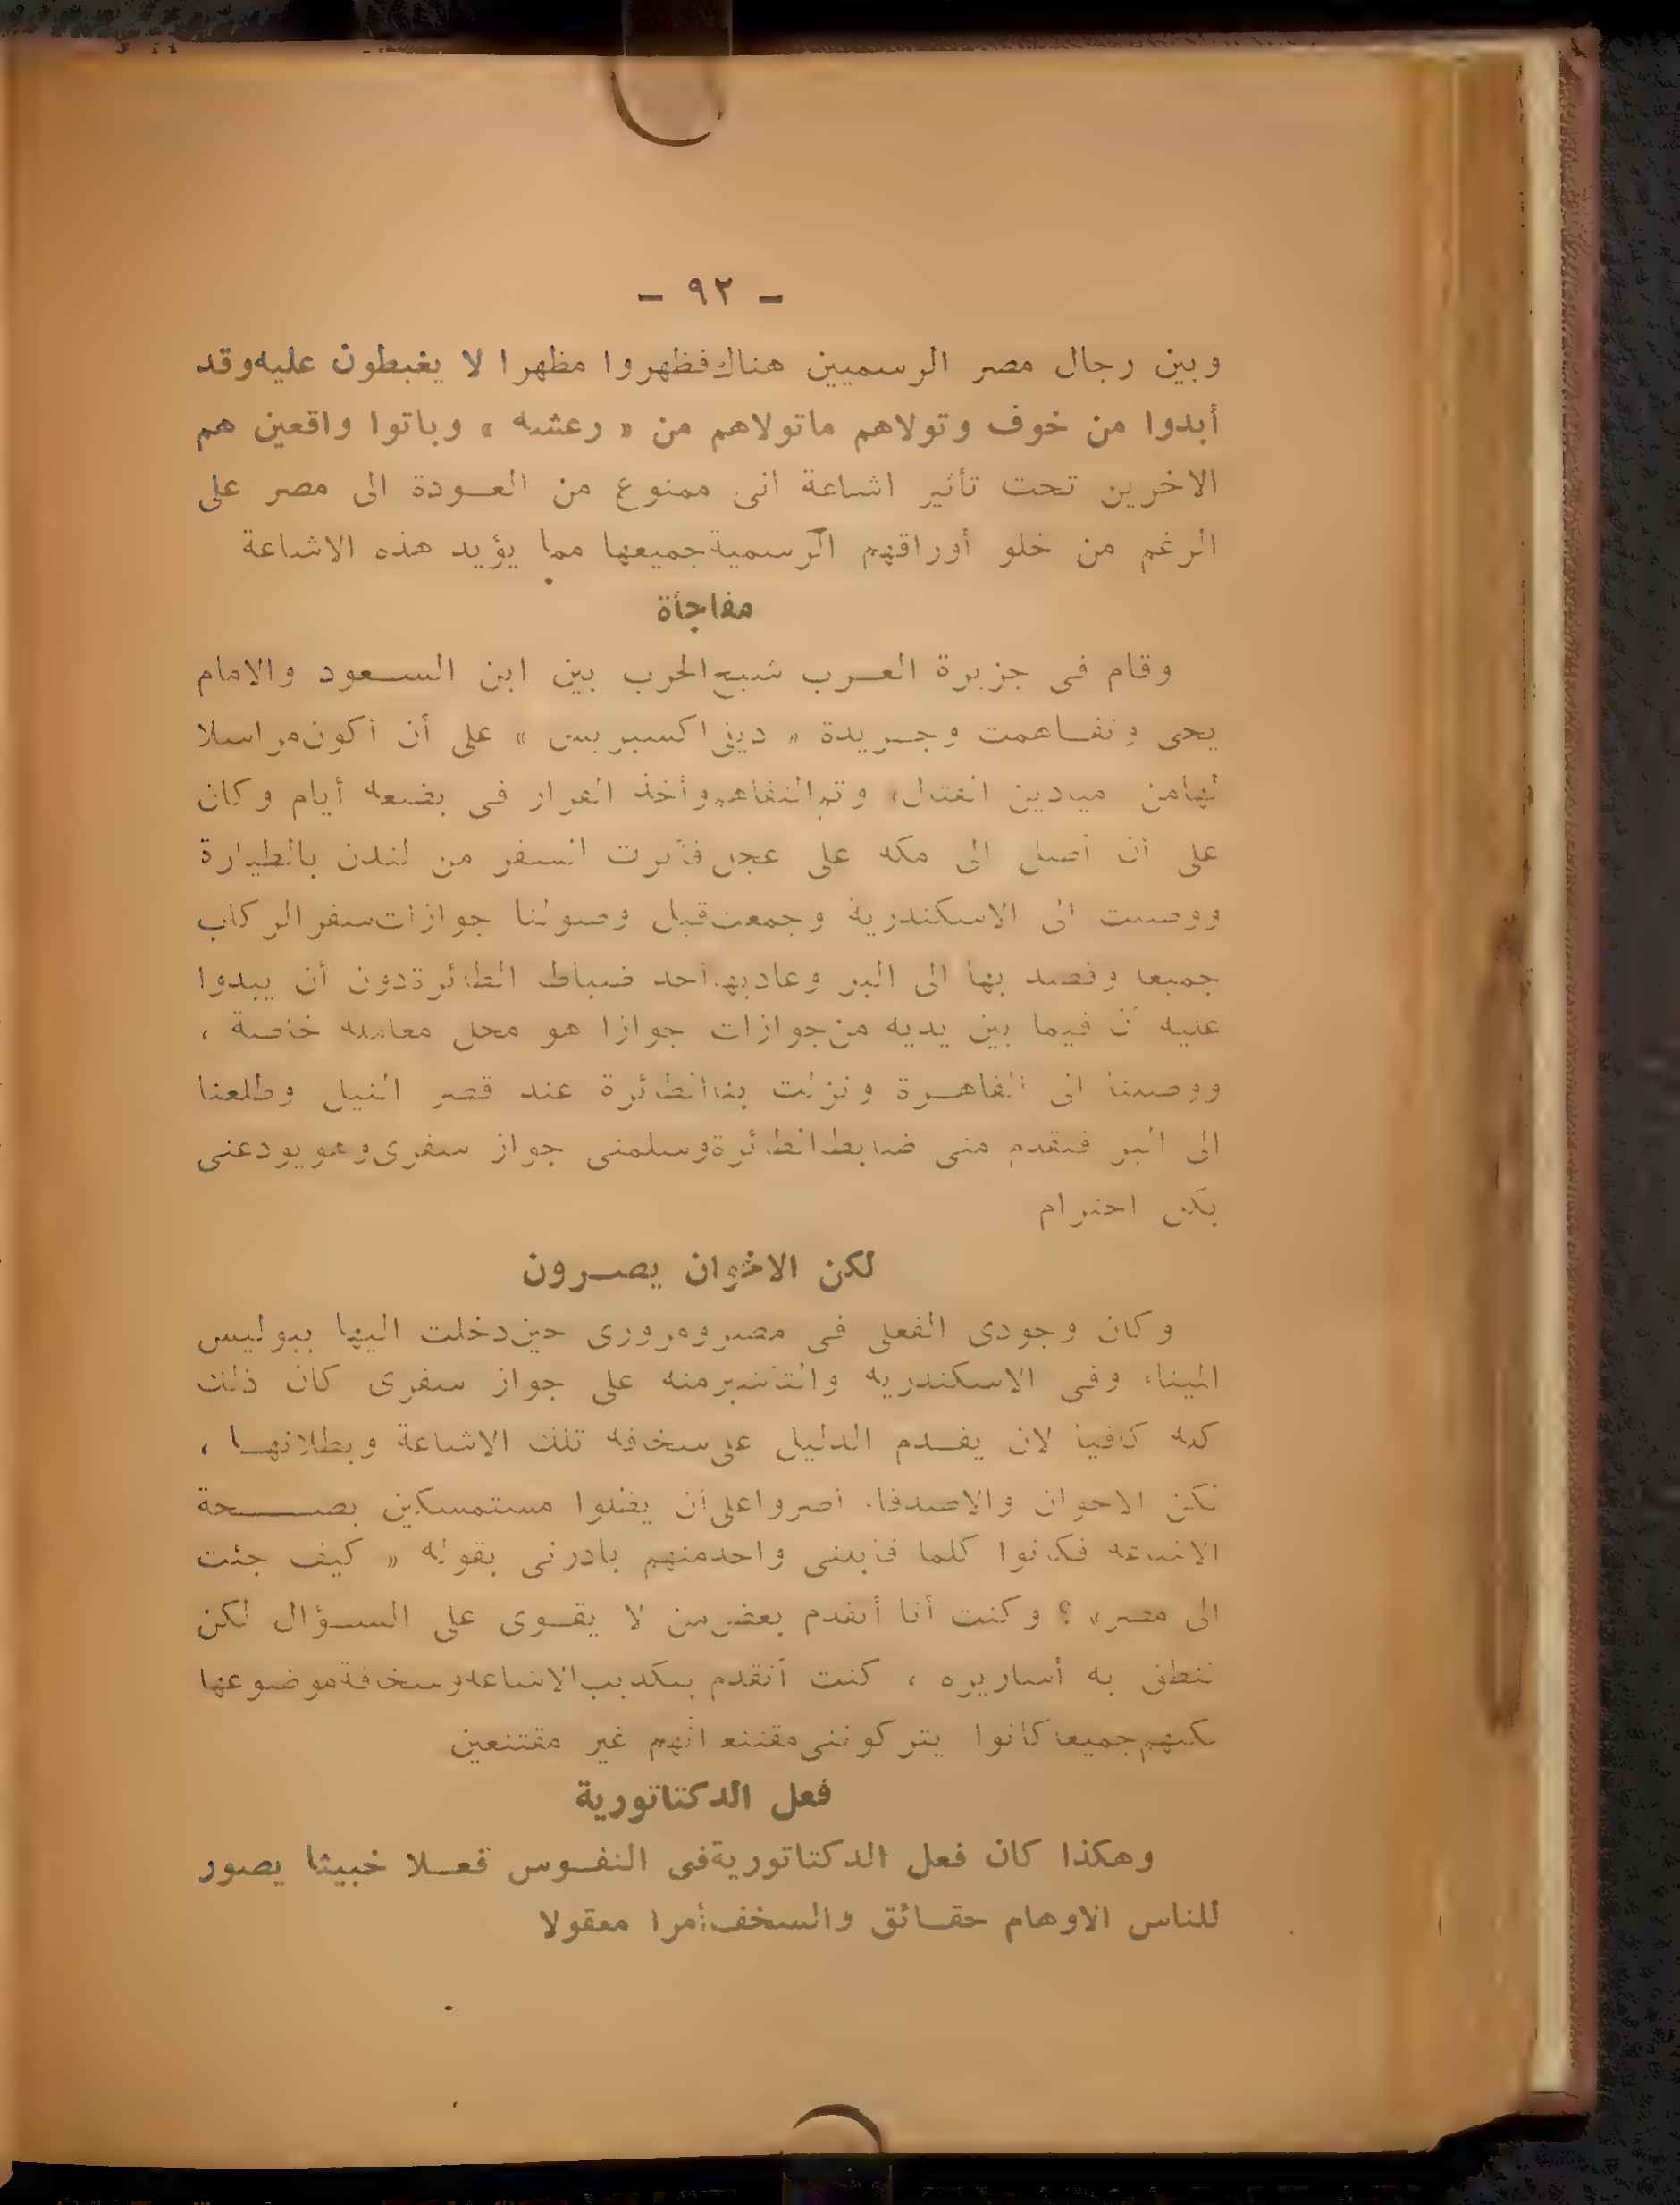 - ٩٢ -
وبين رجال مصر الرسميين هناك فظهروا مظهرا لا يغبطون عليه وقد
أبدوا من خوف وتولاهم ماتولاهم من « رعشه » وباتوا واقعين هم
الاخرين تحت تأثير اشاعة انى ممنوع من العودة الى مصر على
الرغم من خلو أوراقهم الرسمية جميعها مما يؤيد هذه الاشاعة
مفاجأة
وقام فى جزيرة العرب شبح الحرب بين ابن السعود والامام
يحى وتفاهمت وجريدة « ديلى اكسبريس » على أن أكون مراسلا
لها من ميادين القتال، وتم التفاهم وأخذ القرار فى بضعه أيام وكان
على أن أصل الى مكه على عجل فآثرت السفر من لندن بالطيارة
ووصلت الى الاسكندرية وجمعت قبل وصولنا جوازات سفر الركاب
جميعا وقصد بها الى البر وعاد بها أحد ضباط الطائرة دون أن يبدوا
عليه أن فيما بين يديه من جوازات جوازا هو محل معامله خاصة ،
ووصلنا الى القاهرة ونزلت بنا الطائرة عند قصر النيل وطلعنا
الى البر فتقدم منى ضابط الطائرة وسلمنى جواز سفرى وهو يودعنى
بكل احترام
لكن الاخوان يصرون
وكان وجودى الفعلى فى مصر ومرورى حين دخلت اليها ببوليس
الميناء وفى الاسكندريه والتأشير منه على جواز سفرى كان ذلك
كله كافيا لان يقدم الدليل على سخافه تلك الاشاعة وبطلانها ،
لكن الاخوان والاصدقاء اصروا على أن يظلوا مستمسكين بصحة
الاشاعه فكانوا كلما قابلنى واحد منهم بادرنى بقوله « كيف جئت
الى مصر » ؟ وكنت أنا أتقدم بعض من لا يقوى على السؤال لكن
تنطق به أساريره ، كنت أتقدم بتكذيب الاشاعه وسخافة موضوعها
لكنهم جميعا كانوا يتركوننى مقتنعا انهم غير مقتنعين
فعل الدكتاتورية
وهكذا كان فعل الدكتاتورية فى النفوس فعلا خبيثا يصور
للناس الاوهام حقائق والسخف أمرا معقولا